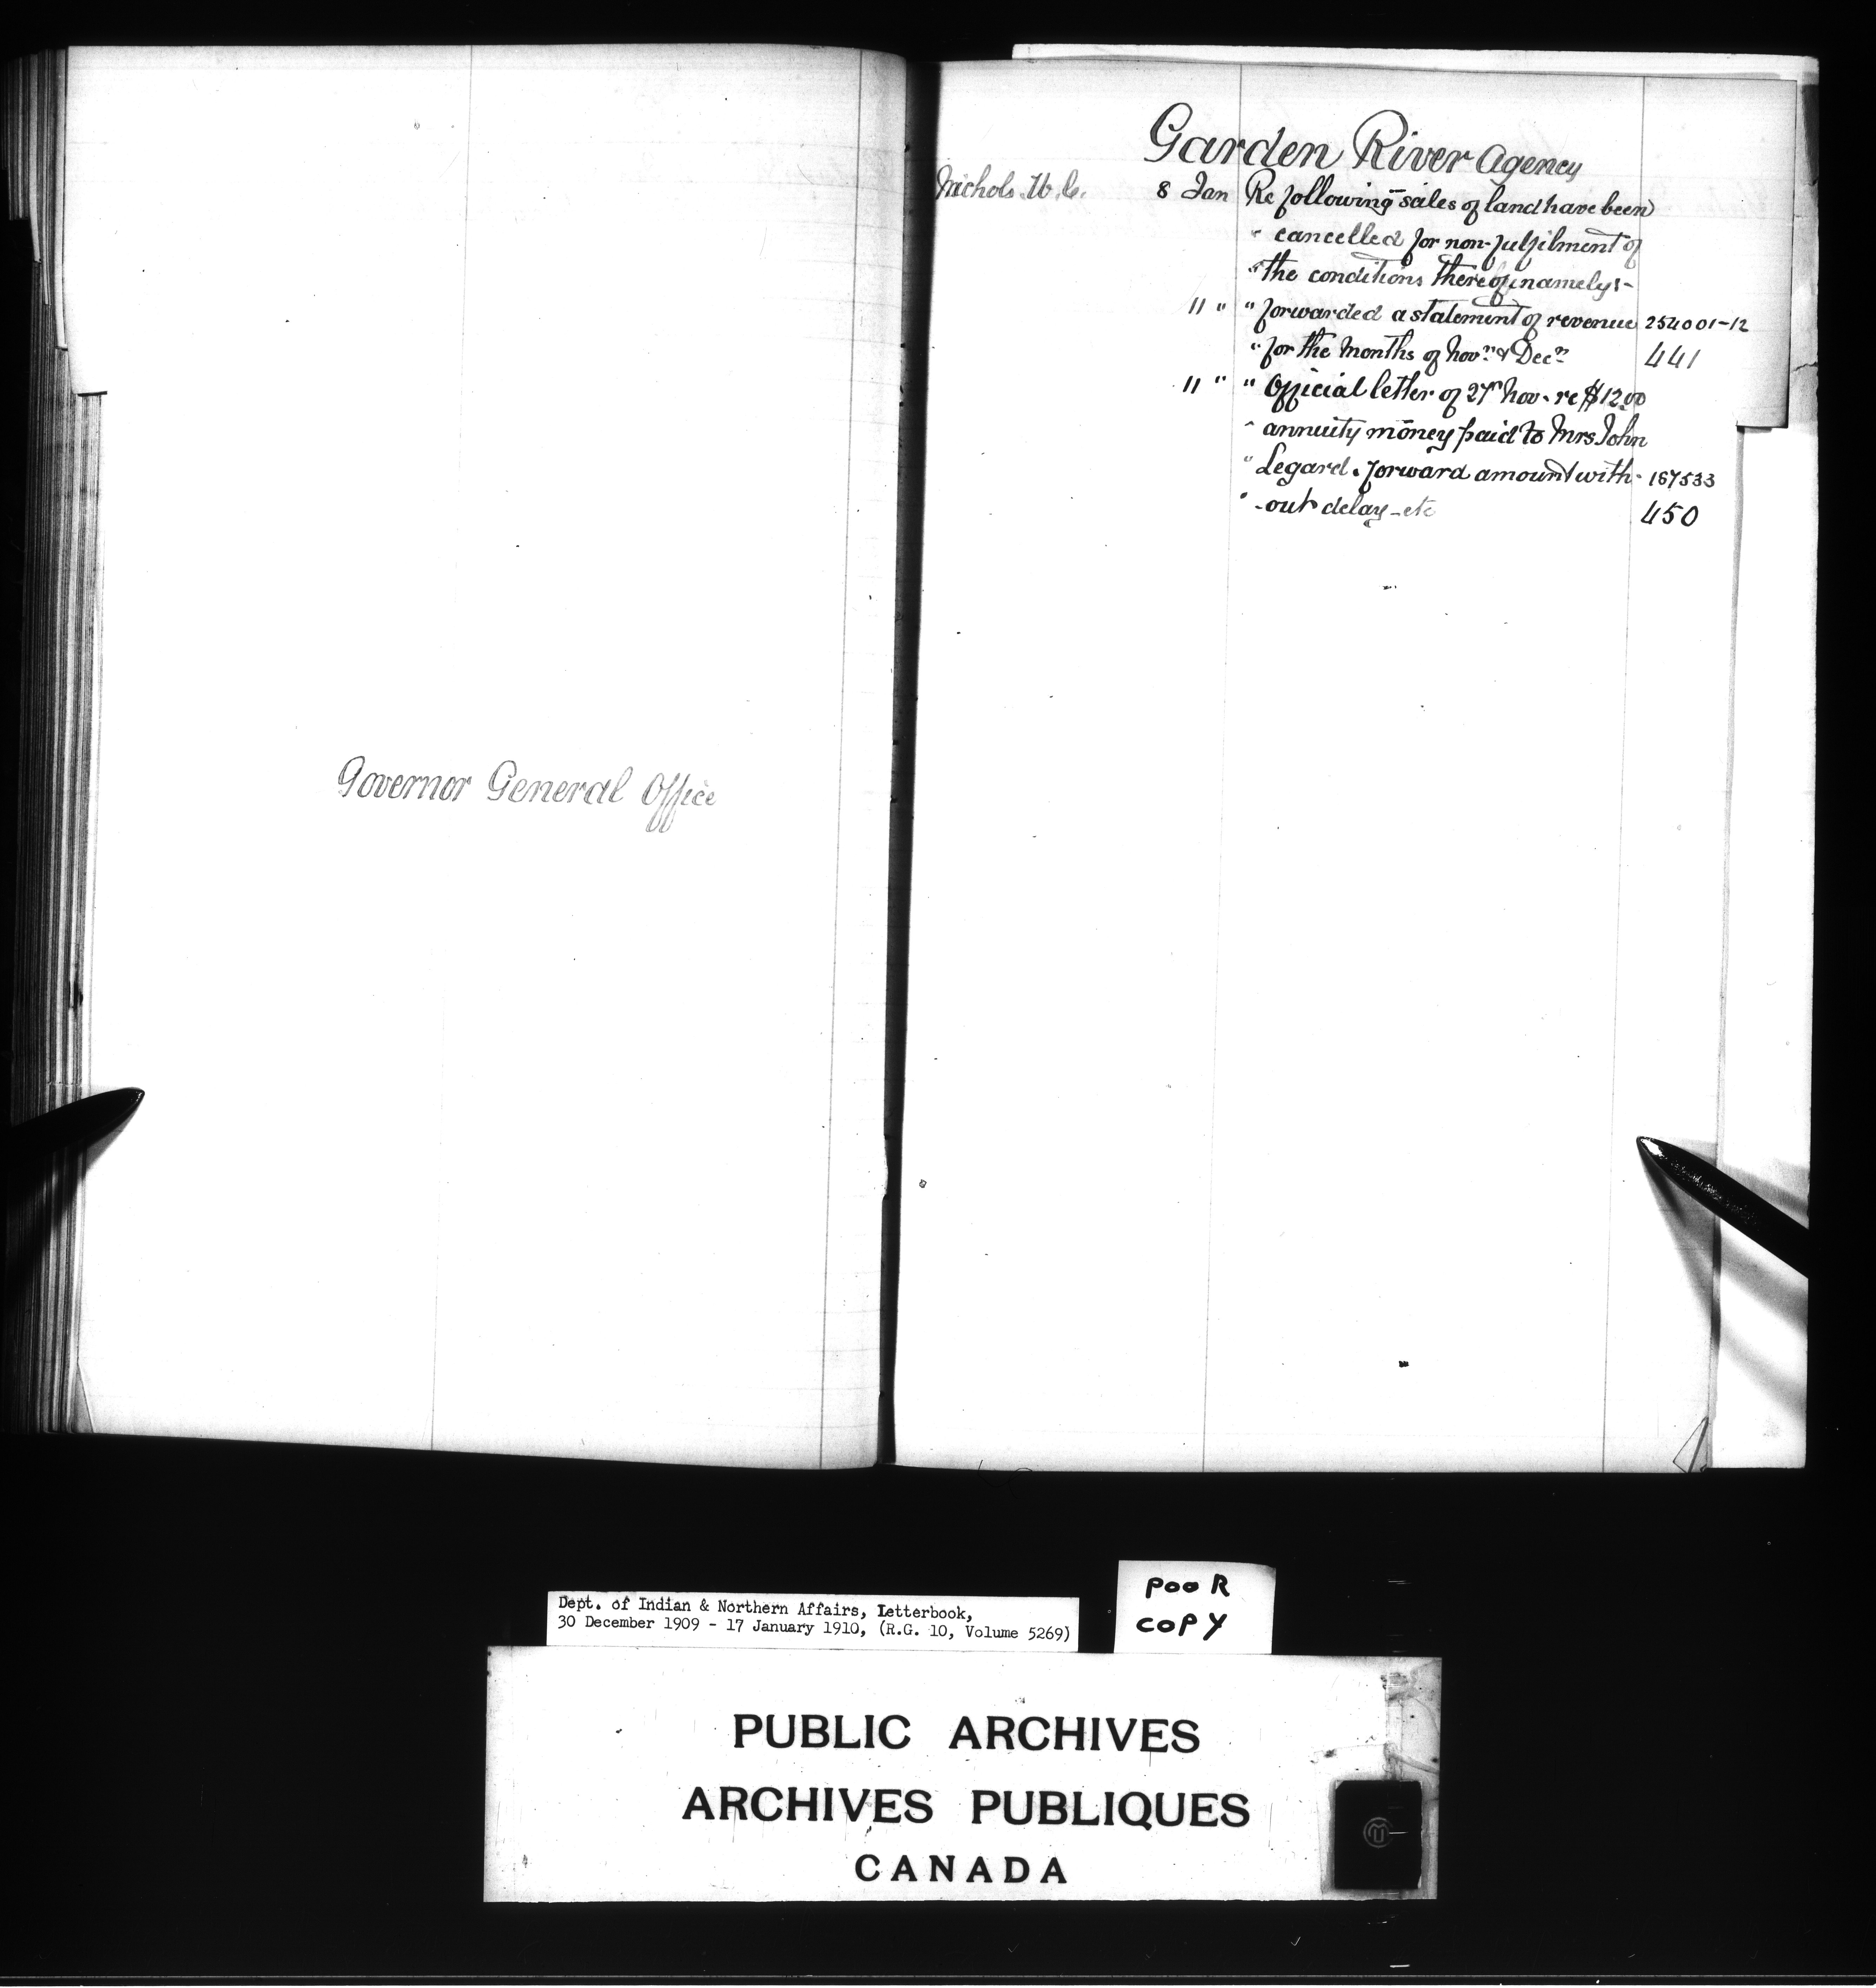 Governor General Office
Garden River Agency
Nichols. W. C. 8 Jan Re following sales of land have been
" cancelled for non-fulfilment of
" the conditions thereof, namely:-
11 " " forwarded a statement of revenue 254001-12
" for the months of Novr. & Decr. 441
11 " " Official letter of 27th Nov. re $12.00
" annuity money paid to Mrs John
" Legard. forward amount with- 167533
" -out delay - etc 450
Dept. of Indian & Northern Affairs, Letterbook,
30 December 1909 - 17 January 1910, (R.G. 10, Volume 5269)
POOR
COPY
PUBLIC ARCHIVES
ARCHIVES PUBLIQUES
CANADA